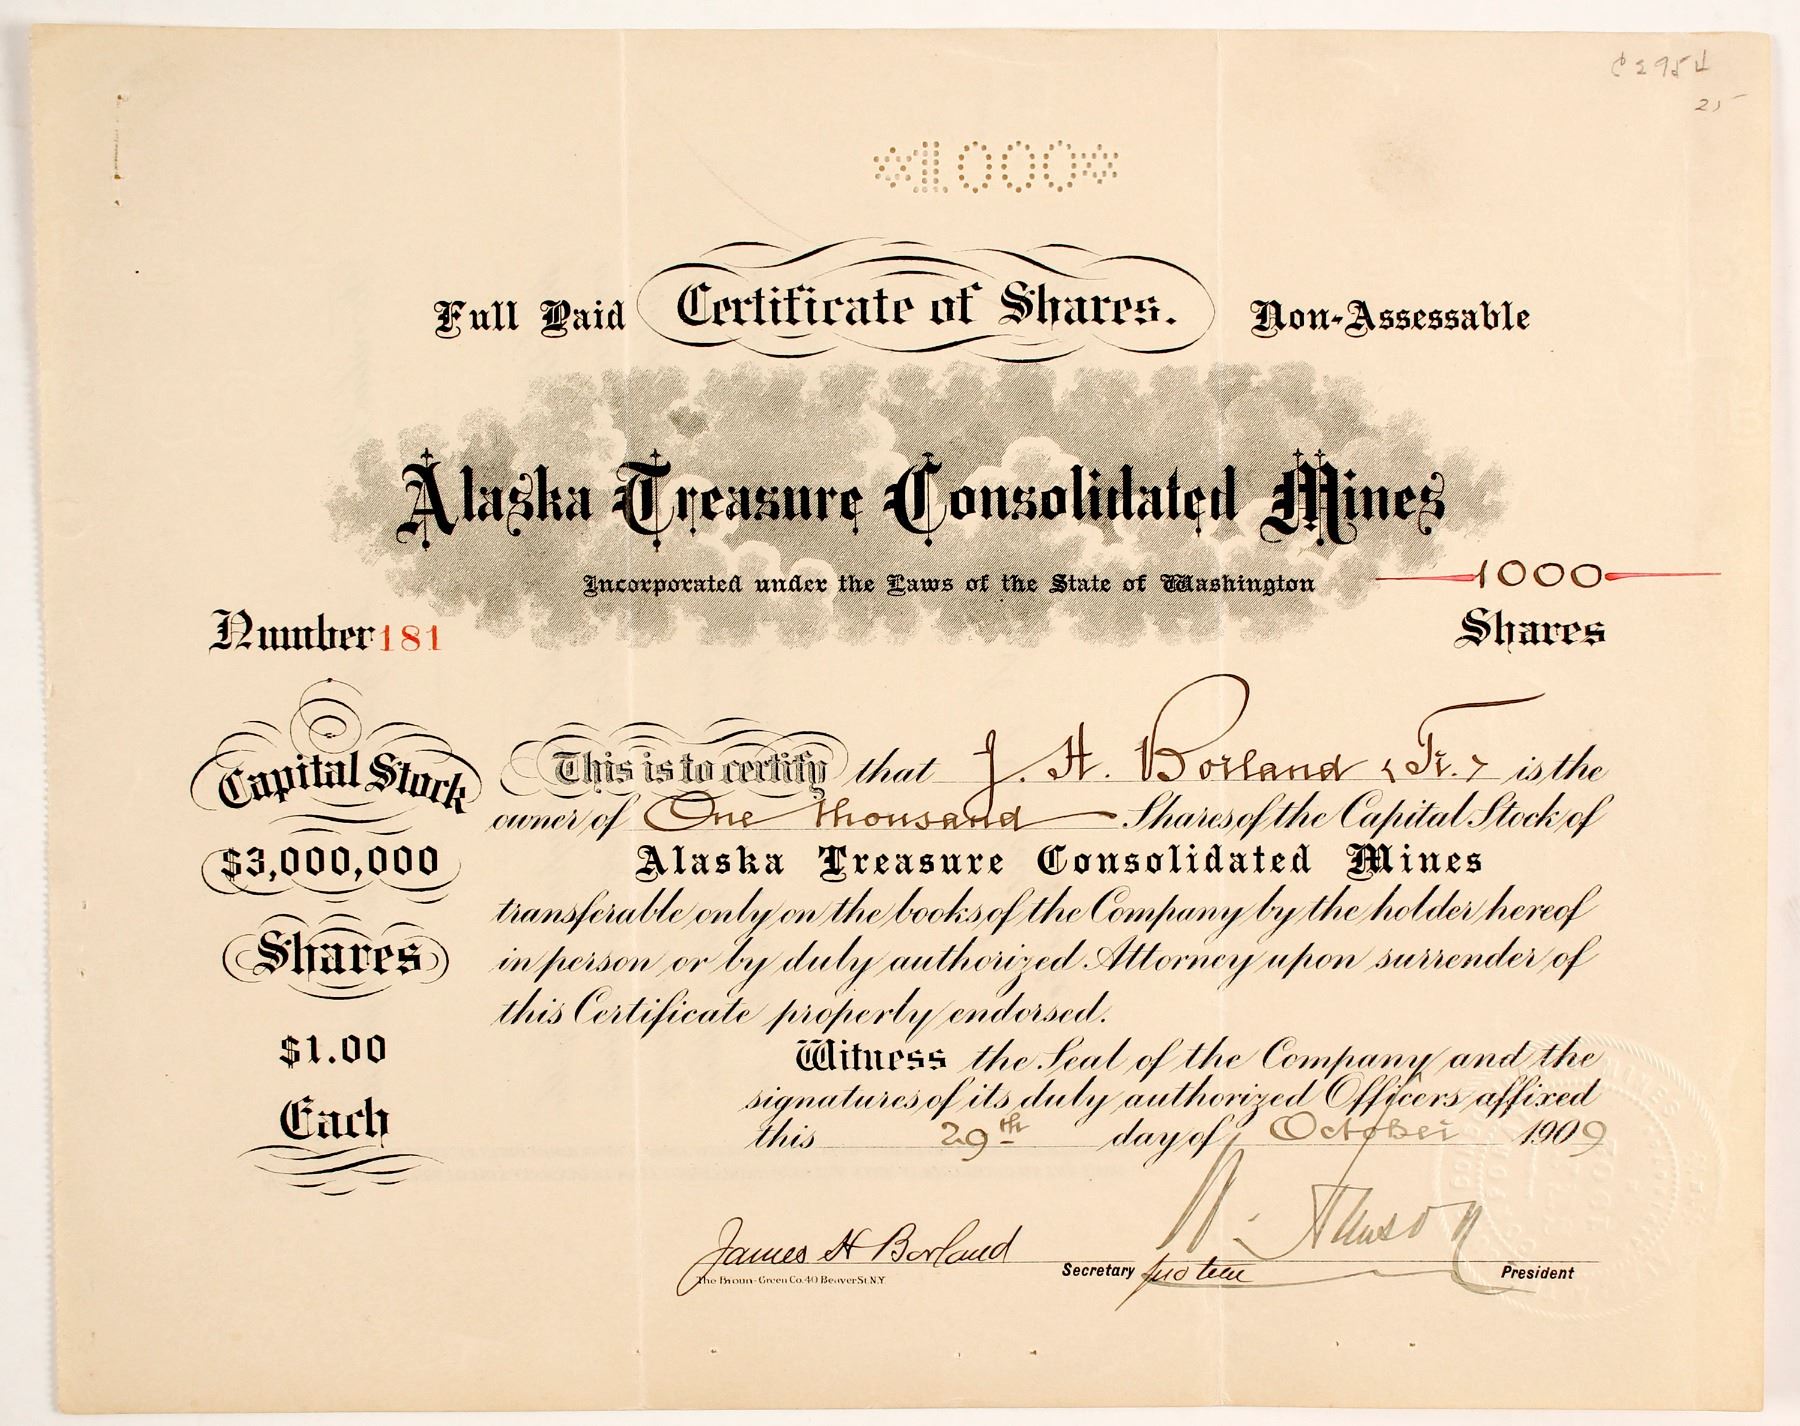 *1000*
Full Paid Certificate of Shares. Non-Assessable
Alaska Treasure Consolidated Mines
Incorporated under the Laws of the State of Washington
1000
Number 181
Shares
Capital Stock
$3,000,000
Shares
$1.00
Each
This is to certify that J. H. Borland (Tr.) is the
owner of One thousand Shares of the Capital Stock of
Alaska Treasure Consolidated Mines
transferable only on the books of the Company by the holder hereof
in person or by duly authorized Attorney upon surrender of
this Certificate properly endorsed.
Witness the Seal of the Company and the
signatures of its duly authorized Officers affixed
this 29th day of October 1909
James H Borland
Secretary pro tem
President
The Broun-Green Co. 40 Beaver St. N.Y.